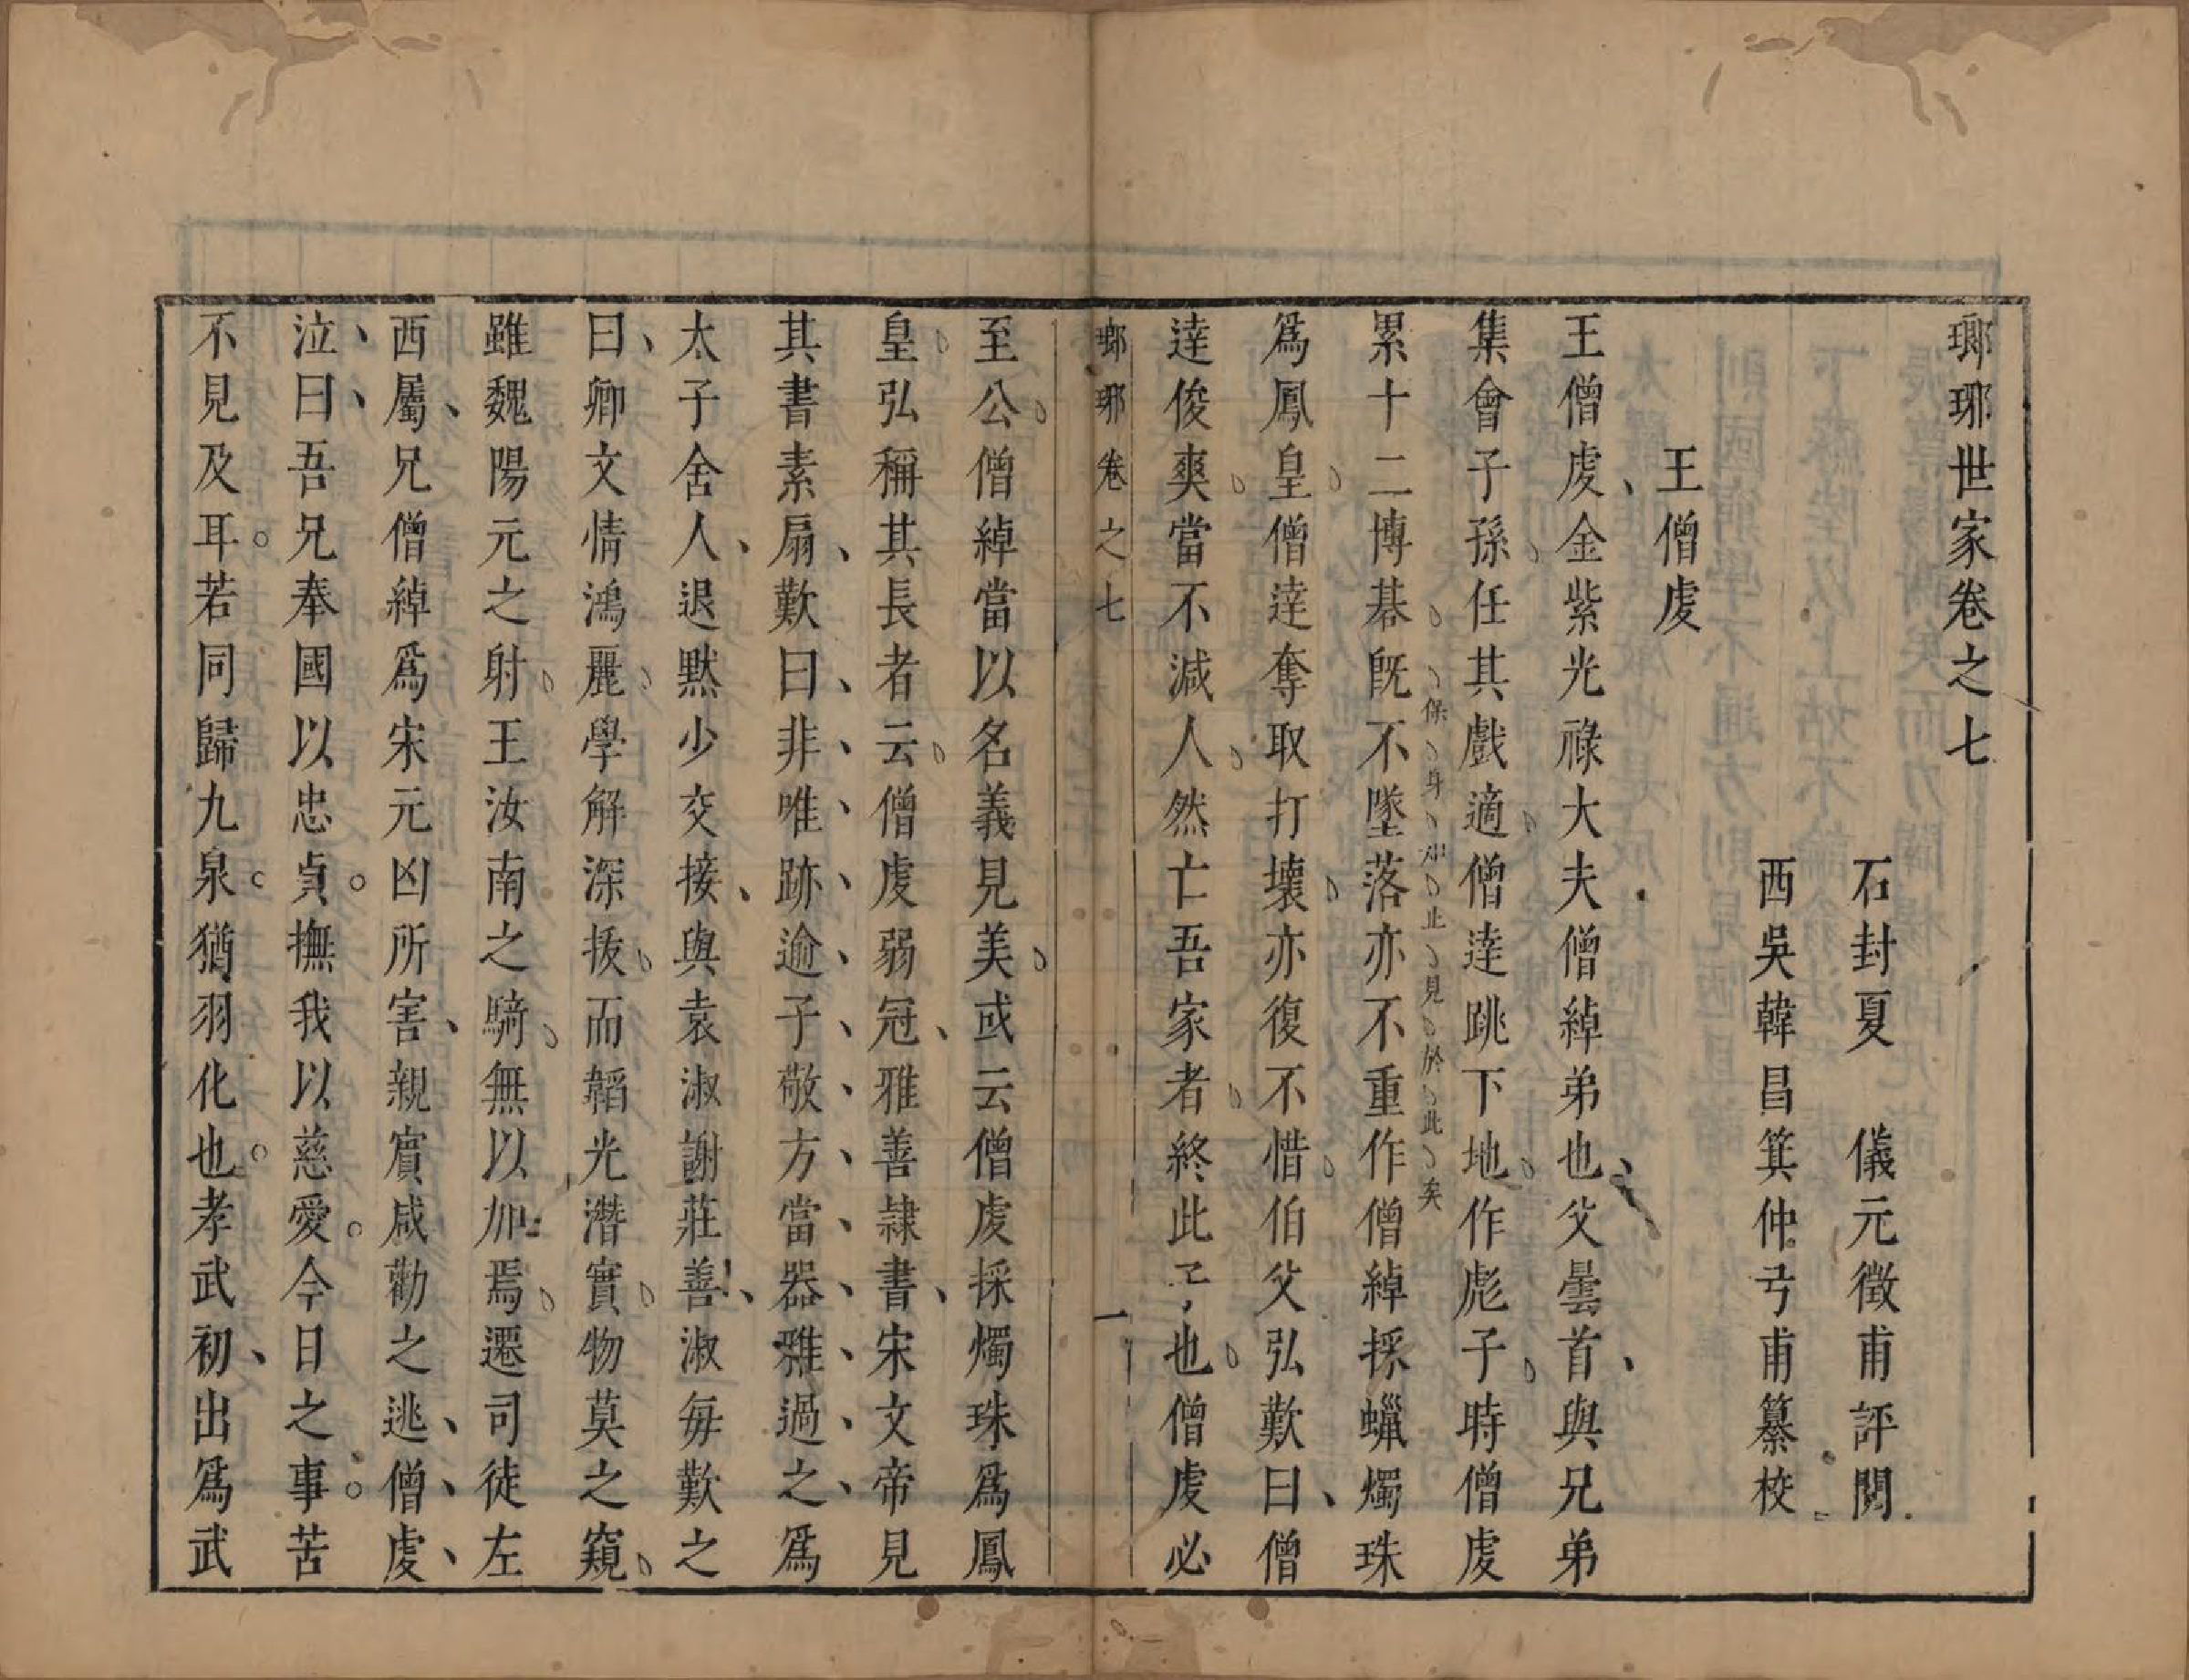 瑯琊世家卷之七
石封夏　儀元徵甫評閱
西吳韓昌箕仲弓甫纂校
王僧虔
王僧虔金紫光祿大夫僧綽弟也父曇首與兄弟
集會子孫任其戲適僧達跳下地作彪子時僧虔
保身知止見於此矣
累十二博碁既不墜落亦不重作僧綽採蠟燭珠
爲鳳皇僧達奪取打壞亦復不惜伯父弘歎曰僧
達俊爽當不減人然亡吾家者終此子也僧虔必
瑯琊卷之七　一
至公僧綽當以名義見美或云僧虔採燭珠爲鳳
皇弘稱其長者云僧虔弱冠雅善隷書宋文帝見
其書素扇歎曰非唯跡逾子敬方當器雅過之爲
太子舍人退默少交接與袁淑謝莊善淑每歎之
曰卿文情鴻麗學解深拔而韜光潛實物莫之窺
雖魏陽元之射王汝南之騎無以加焉遷司徒左
西屬兄僧綽爲宋元凶所害親賓咸勸之逃僧虔
泣曰吾兄奉國以忠貞撫我以慈愛今日之事苦
不見及耳若同歸九泉猶羽化也孝武初出爲武